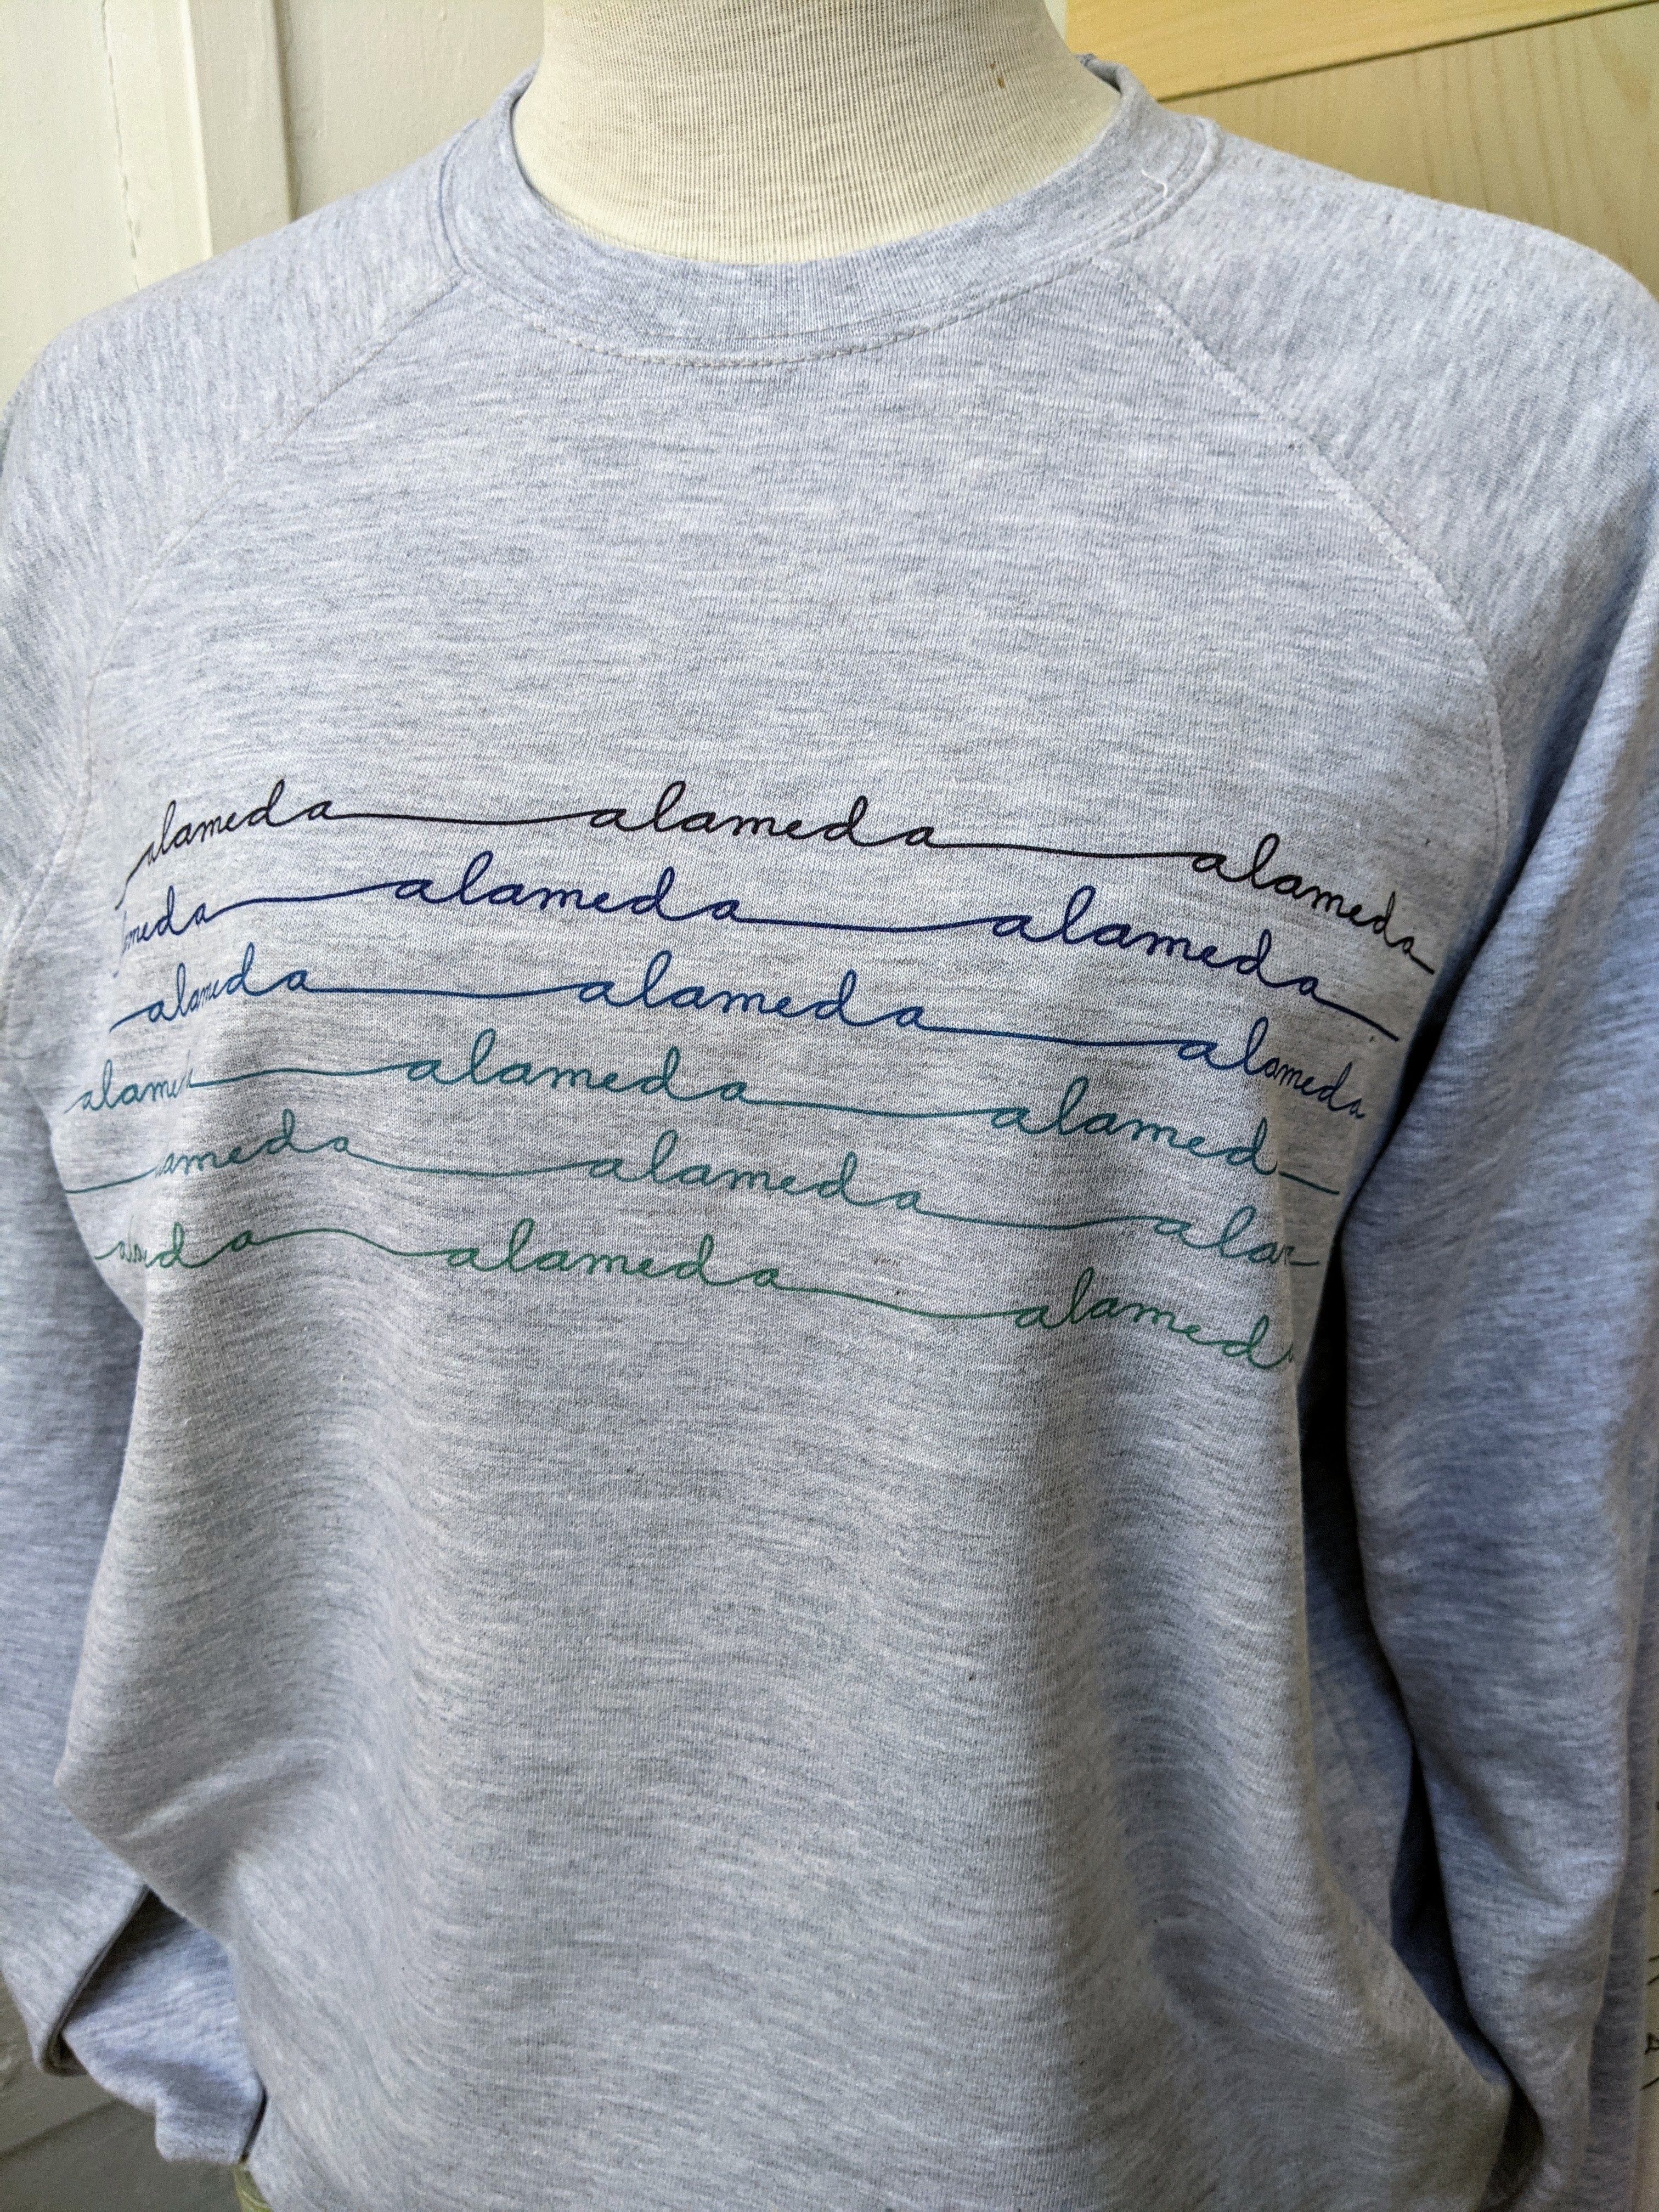 alameda alameda alameda
ameda alameda alameda
alameda alameda alameda
alamed alameda alamed
ameda alameda ala
alameda alamed